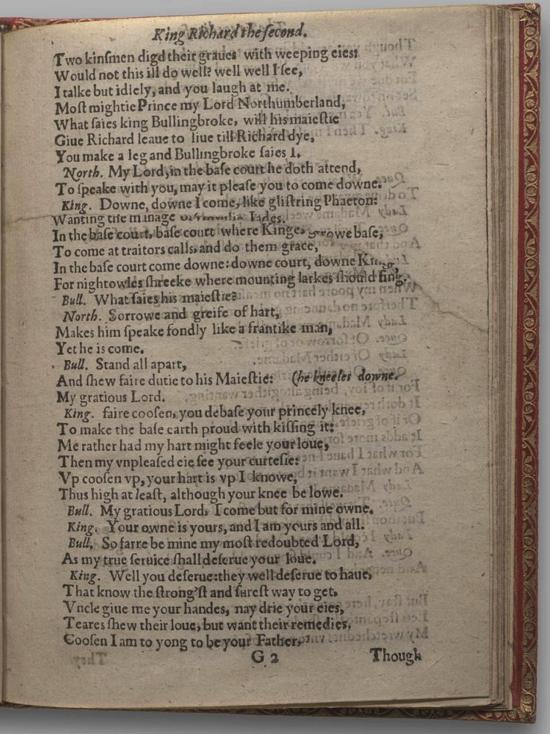 King Richard the second.
Two kinsmen digd their graues with weeping eies:
Would not this ill do well? well well I see,
I talke but idlely, and you laugh at me.
Most mightie Prince my Lord Northumberland,
What saies king Bullingbroke, will his maiestie
Giue Richard leaue to liue till Richard dye,
You make a leg and Bullingbroke saies I.
North. My Lord, in the base court he doth attend,
To speake with you, may it please you to come downe.
King. Downe, downe I come, like glistring Phaeton:
Wanting the manage Iades.
In the base court, base court where Kinges growe base,
To come at traitors calls, and do them grace,
In the base court come downe: downe court, downe King,
For nightowles shreeke where mounting larkes should sing.
Bull. What saies his maiestie?
North. Sorrowe and greife of hart,
Makes him speake fondly like a frantike man,
Yet he is come.
Bull. Stand all apart,
And shew faire dutie to his Maiestie: (he kneeles downe.
My gratious Lord.
King. faire coosen, you debase your princely knee,
To make the base earth proud with kissing it:
Me rather had my hart might feele your loue,
Then my vnpleased eie see your curtesie:
Vp coosen vp, your hart is vp I knowe,
Thus high at least, although your knee be lowe.
Bull. My gratious Lord, I come but for mine owne.
King. Your owne is yours, and I am yours and all.
Bull. So farre be mine my most redoubted Lord,
As my true seruice shall deserue your loue.
King. Well you deserue: they well deserue to haue,
That know the strong'st and surest way to get,
Vncle giue me your handes, nay drie your eies,
Teares shew their loue, but want their remedies,
Coosen I am to yong to be your Father,
G 2 Though